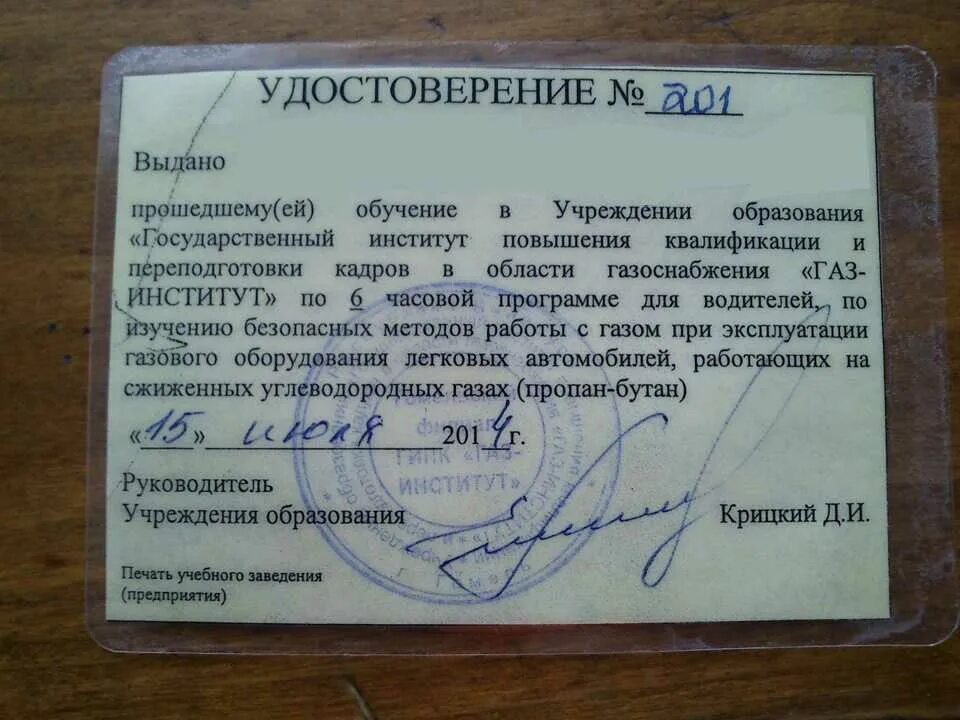 УДОСТОВЕРЕНИЕ № 201
Выдано
прошедшему(ей) обучение в Учреждении образования
«Государственный институт повышения квалификации и
переподготовки кадров в области газоснабжения «ГАЗ-
ИНСТИТУТ» по 6 часовой программе для водителей, по
изучению безопасных методов работы с газом при эксплуатации
газового оборудования легковых автомобилей, работающих на
сжиженных углеводородных газах (пропан-бутан)
«15» июля 2014г.
Руководитель
Учреждения образования Крицкий Д.И.
Печать учебного заведения
(предприятия)
филиал
ГИПК «ГАЗ-
ИНСТИТУТ»